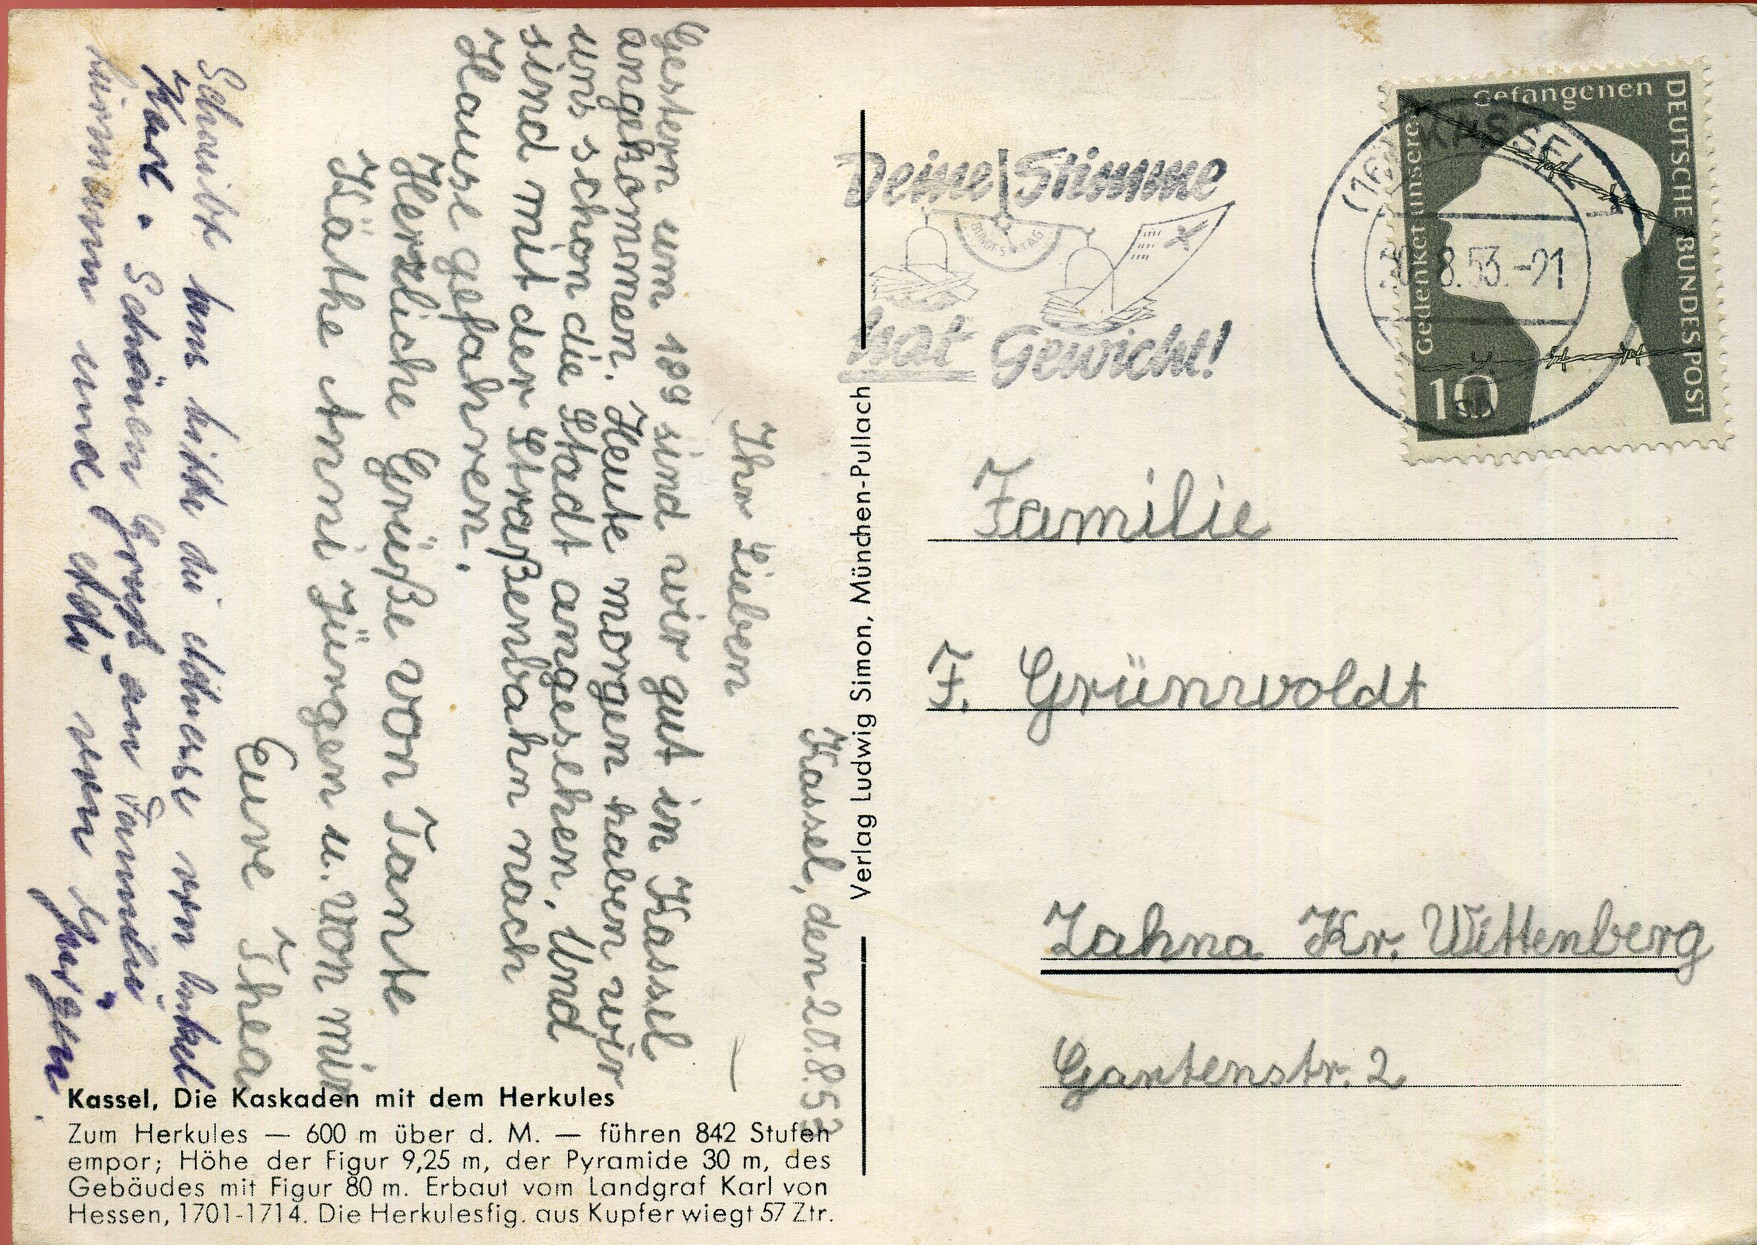 Kassel, den 20.8.53
Ihr Lieben
Gestern um 18⁰⁰ sind wir gut in Kassel
angekommen. Heute morgen haben wir
uns schon die Stadt angesehen. Und
sind mit der Straßenbahn nach
Hause gefahren.
Herzliche Grüße von Tante
Käthe Anni Jürgen u. von mir
Eure Thea
Schreibt uns bitte die Adresse von Onkel
Karl. Schönen Gruß an Familie
und von Jürgen.
Kassel, Die Kaskaden mit dem Herkules
Zum Herkules — 600 m über d. M. — führen 842 Stufen
empor; Höhe der Figur 9,25 m, der Pyramide 30 m, des
Gebäudes mit Figur 80 m. Erbaut vom Landgraf Karl von
Hessen, 1701-1714. Die Herkulesfig. aus Kupfer wiegt 57 Ztr.
Verlag Ludwig Simon, München-Pullach
Deine Stimme
BUNDESTAG
hat Gewicht!
(16) KASSEL
8.53.-21
Gedenket unserer
Gefangenen
DEUTSCHE BUNDESPOST
10
Familie
F. Grünwoldt
Zahna Kr. Wittenberg
Gartenstr. 2